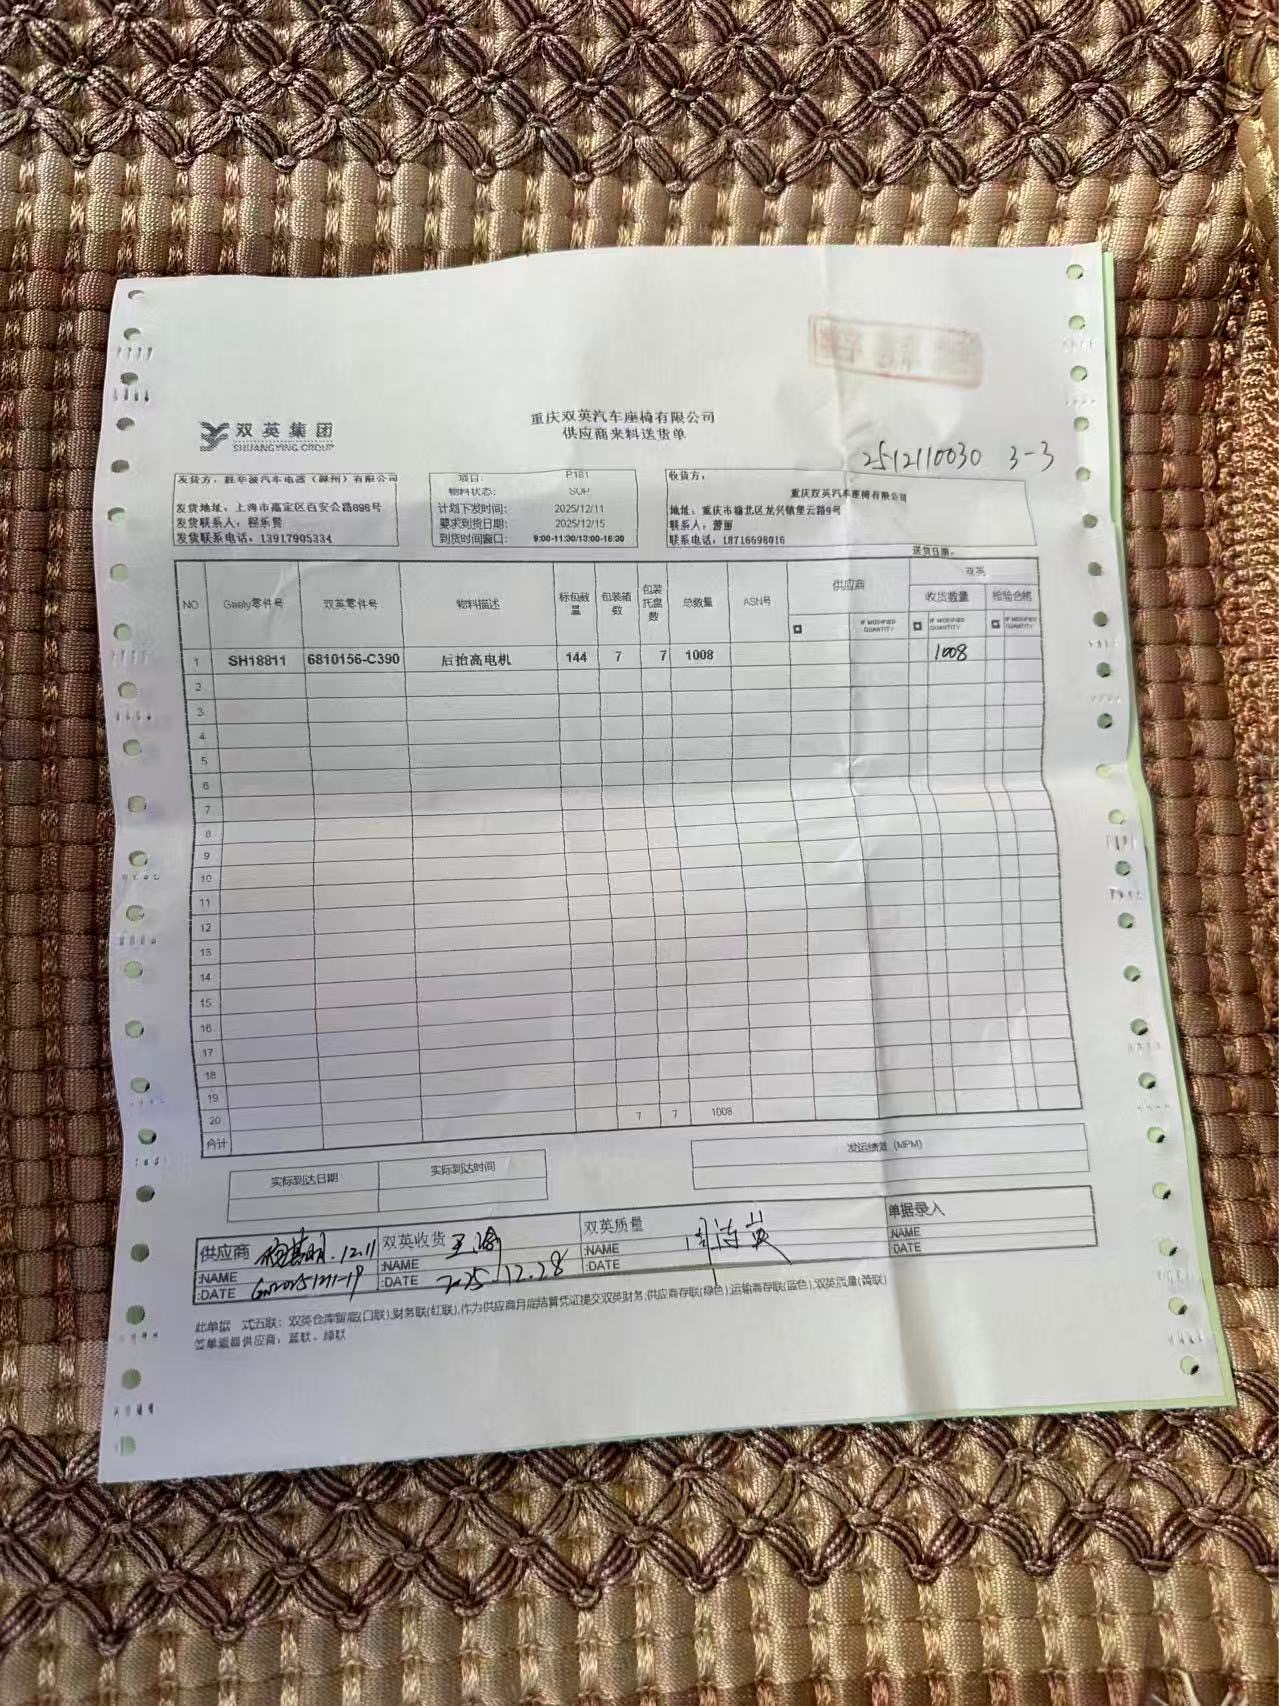 双英集团
SHUANGYING GROUP
重庆双英汽车座椅有限公司
供应商来料送货单
2512110030 3-3
发货方：胜华波汽车电器（滁州）有限公司
发货地址：上海市嘉定区百安公路898号
发货联系人：程乐贤
发货联系电话：13917905334
项目： P181
物料状态： SOP
计划下发时间： 2025/12/11
要求到货日期： 2025/12/15
到货时间窗口： 9:00-11:30/13:00-16:30
收货方：
重庆双英汽车座椅有限公司
地址：重庆市渝北区龙兴镇堡云路9号
联系人：
联系电话：18716698016
送货日期：
NO Geely零件号 双英零件号 物料描述 标包数量 包装箱数 包装托盘数 总数量 ASN号 供应商 双英
收货数量 检验合格
IF MODIFIED QUANTITY IF MODIFIED QUANTITY IF MODIFIED QUANTITY
1 SH18811 6810156-C390 后抬高电机 144 7 7 1008 1008
2
3
4
5
6
7
8
9
10
11
12
13
14
15
16
17
18
19
20
合计 7 7 1008
实际到达日期 实际到达时间
发运绩效（MPM）
供应商 12.11 双英收货 双英质量 单据录入
:NAME :NAME :NAME :NAME
:DATE :DATE 2025.12.28 :DATE :DATE
此单据 式五联：双英仓库留底(门联),财务联(红联),作为供应商月底结算凭证提交双英财务,供应商存联(绿色),运输商存联(蓝色),双英质量(黄联)
签单返回供应商：蓝联、绿联